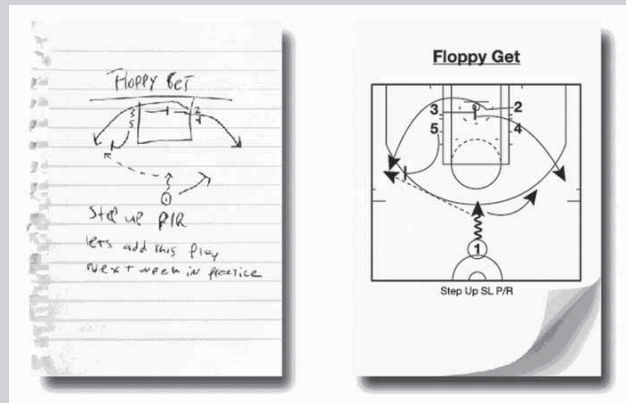 Floppy Get
3
2
5
4
1
Step up P/R
lets add this play
next week in practice
Floppy Get
3
2
5
4
1
Step Up SL P/R